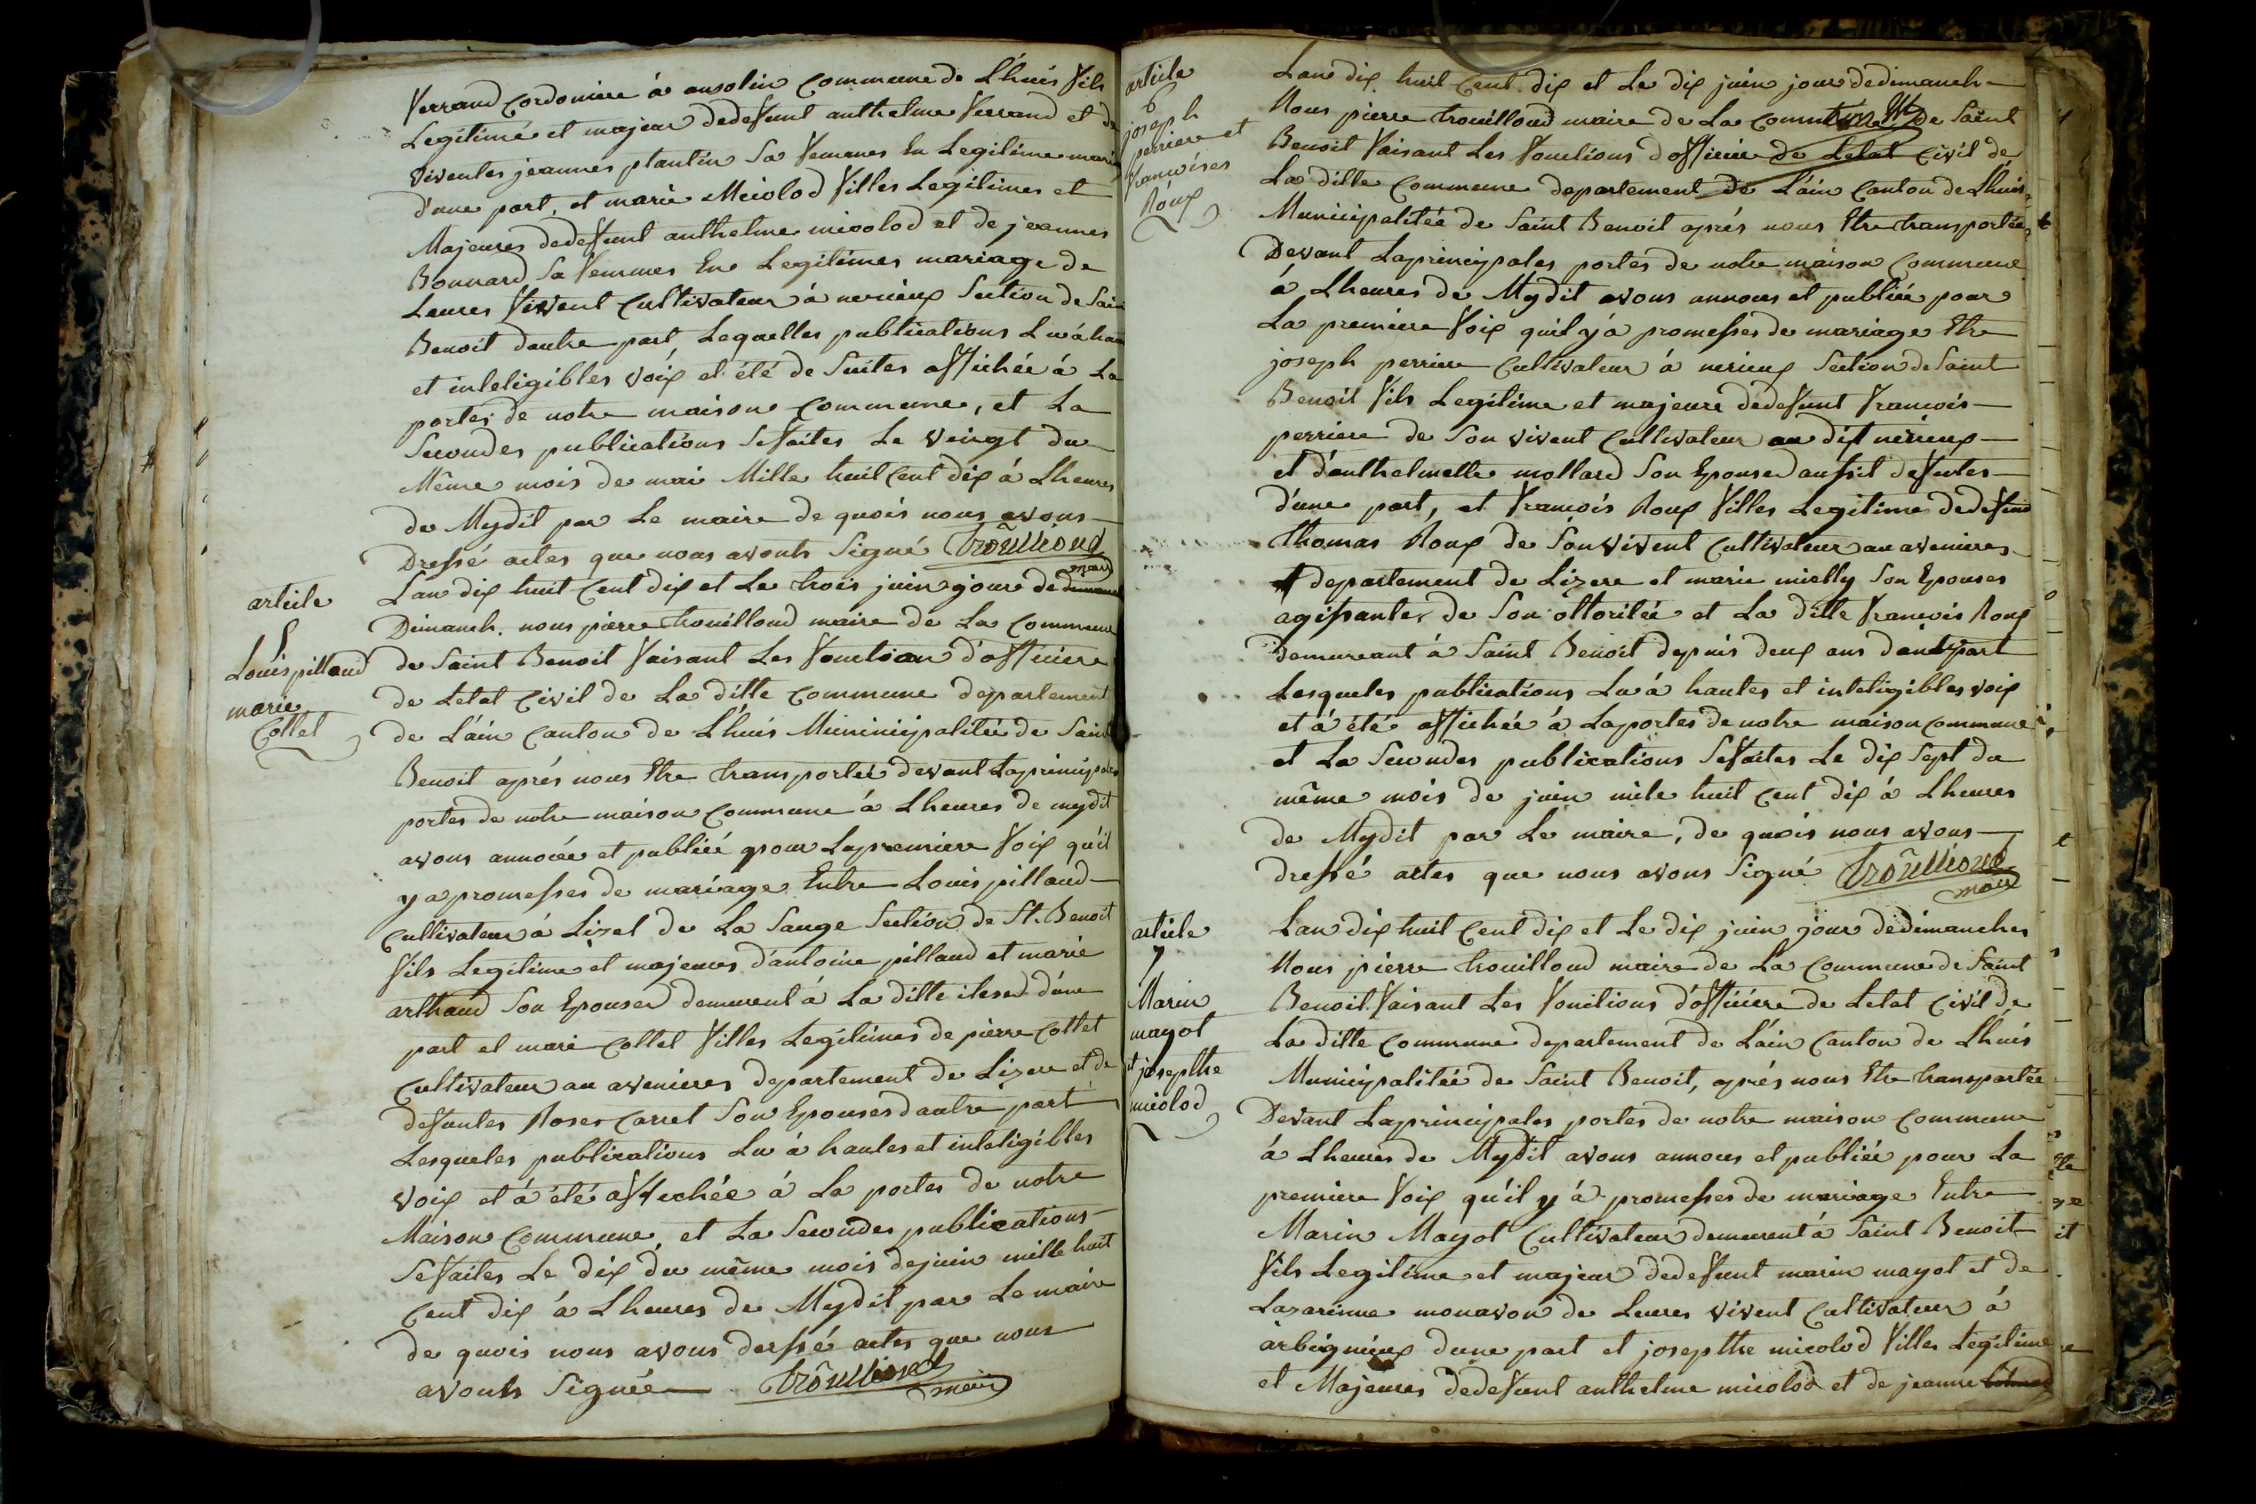 Ferrand Cordoniere á ansolin Commune de Lhuis fils
Legitime et majeur dedefunt anthelme ferrand et de
viventes jeannes plantin sa femmes En Legitime mariage
d'une part, et marie Miolod filles Legitimes et
Majeures dedefunt anthelme micolod et de jeannes
Bonnard Sa femmes En Legitimes mariage de
Leures vivent Cultivateur á nerieux Section de Saint
Benoit dautre part Lequelles publications Lu á haute
et inteligibles voix et été de Suites affichée á La
portes de notre maison Commune, et La
Secondes publications Sefaites Le veingt du
Même mois de mai Mille huit Cent dix á Lheures
de Mydit par Le maire de quois nous avons
Dressé actes que nous avonts Signé Trouilloud
maire
article
5
Louis pilland
marie
Collet
Lan dix huit Cent dix et Le trois juin jour de
Dimanch. nous pierre trouilloud maire de La Commune
de Saint Benoit faisant Les fonction d'officiere
de Letat Civil de La ditte Commune departement
de L'ain Canton de L'huis Municipalitée de Saint
Benoit aprés nous Etre transportée devant Laprincipales
portes de notre maison Commune á Lheures de mydit
avons annocée et publiée pour Lapremiere foix qu'il
y a promesses de mariage Entre Louis pilland
Cultivateur á Lizel de La Sauge Section de St. Benoit
fils Legitime et majeures d'antoine pilland et marie
arthaud Son Epouses demeurent á La ditte d'une
part et marie Collet filles Legitimes de pierre Collet
Cultivateur au avenieres departement de Lizere et de
defuntes Roses Carret Son Epouses dautre part
Lesqueles publications Lu á hautes et inteligibles
voix et á été affichée á La portes de notre
Maison Commune, et La Secondes publications
Sefaites Le dix du même mois dejuin mille huit
Cent dix á Lheures de Mydit par Le maire
de quois nous avons dressé actes que nous
avonts Signée Trouilloud
maire
article
6
joseph
perriere et
francoises
Roux
Lan dix huit Cent dix et Le dix juin jour dedimanch
Nous pierre trouilloud maire de La Commune de Saint
Benoit faisant Les fonctions d'officiere de Letat Civil de
La ditte Commune departement de L'ain Canton de Lhuis
Municipalitée de Saint Benoit aprés nous Etre transportée
Devant Laprincipales portes de notre maison Commune
á Lheures de Mydit avons annoces et publiée pour
La premiere foix quil y á promesses de mariage Etre
joseph perriere Cultivateur á nerieux Section de Saint
Benoit fils Legitime et majeure dedefunt francois
perriere de Son vivent Cultivateur au dit nerieux
et d'anthelmette mollard Son Epouses aussit defuntes
d'une part, et francois Roux filles Legitime dedefunt
thomas Roux de Son vivent Cultivateur au avenieres
departement de Lizere et marie mielly Son Epouses
agissantes de Son ottoritée et La ditte francois Roux
demeureant á Saint Benoit depuis deux ans dautre part
Lesqueles publications Lu á hautes et inteligibles voix
et á été affichée á Laportes de notre maison Commune
et La Secondes publications Sefaites Le dix Sept du
même mois de juin mile huit Cent dix á Lheures
de Mydit par Le maire, de quois nous avons
dressé actes que nous avons Signé Trouilloud
maire
article
7
Marin
mayot
et josepthe
micolod
Lan dix huit Cent dix et Le dix juin jour dedimanches
Nous pierre trouilloud maire de La Commune de Saint
Benoit faisant Les fonctions d'officiere de Letat Civil de
La ditte Commune departement de L'ain Canton de Lhuis
Municipalitée de Saint Benoit, aprés nous Etre transportée
Devant Laprincipales portes de notre maison Commune
á Lheures de Mydit avons annoces et publiée pour La
premiere foix qu'il y á promesses de mariage Entre
Marin Mayot Cultivateur demeurent á Saint Benoit
fils Legitime et majeur dedefunt marin mayot et de
Lazarinne monavon de Leures vivent Cultivateur á
arbignieux dune part et josepthe micolod filles Legitime
et Majeures dedefunt anthelme micolod et de jeanne